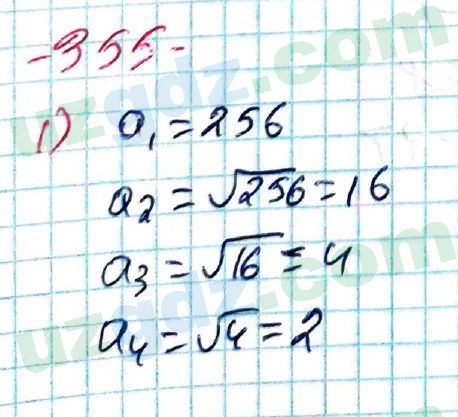 -355-
1) a₁ = 256
a₂ = √256 = 16
a₃ = √16 = 4
a₄ = √4 = 2
uzgdz.com
uzgdz.com
uzgdz.com